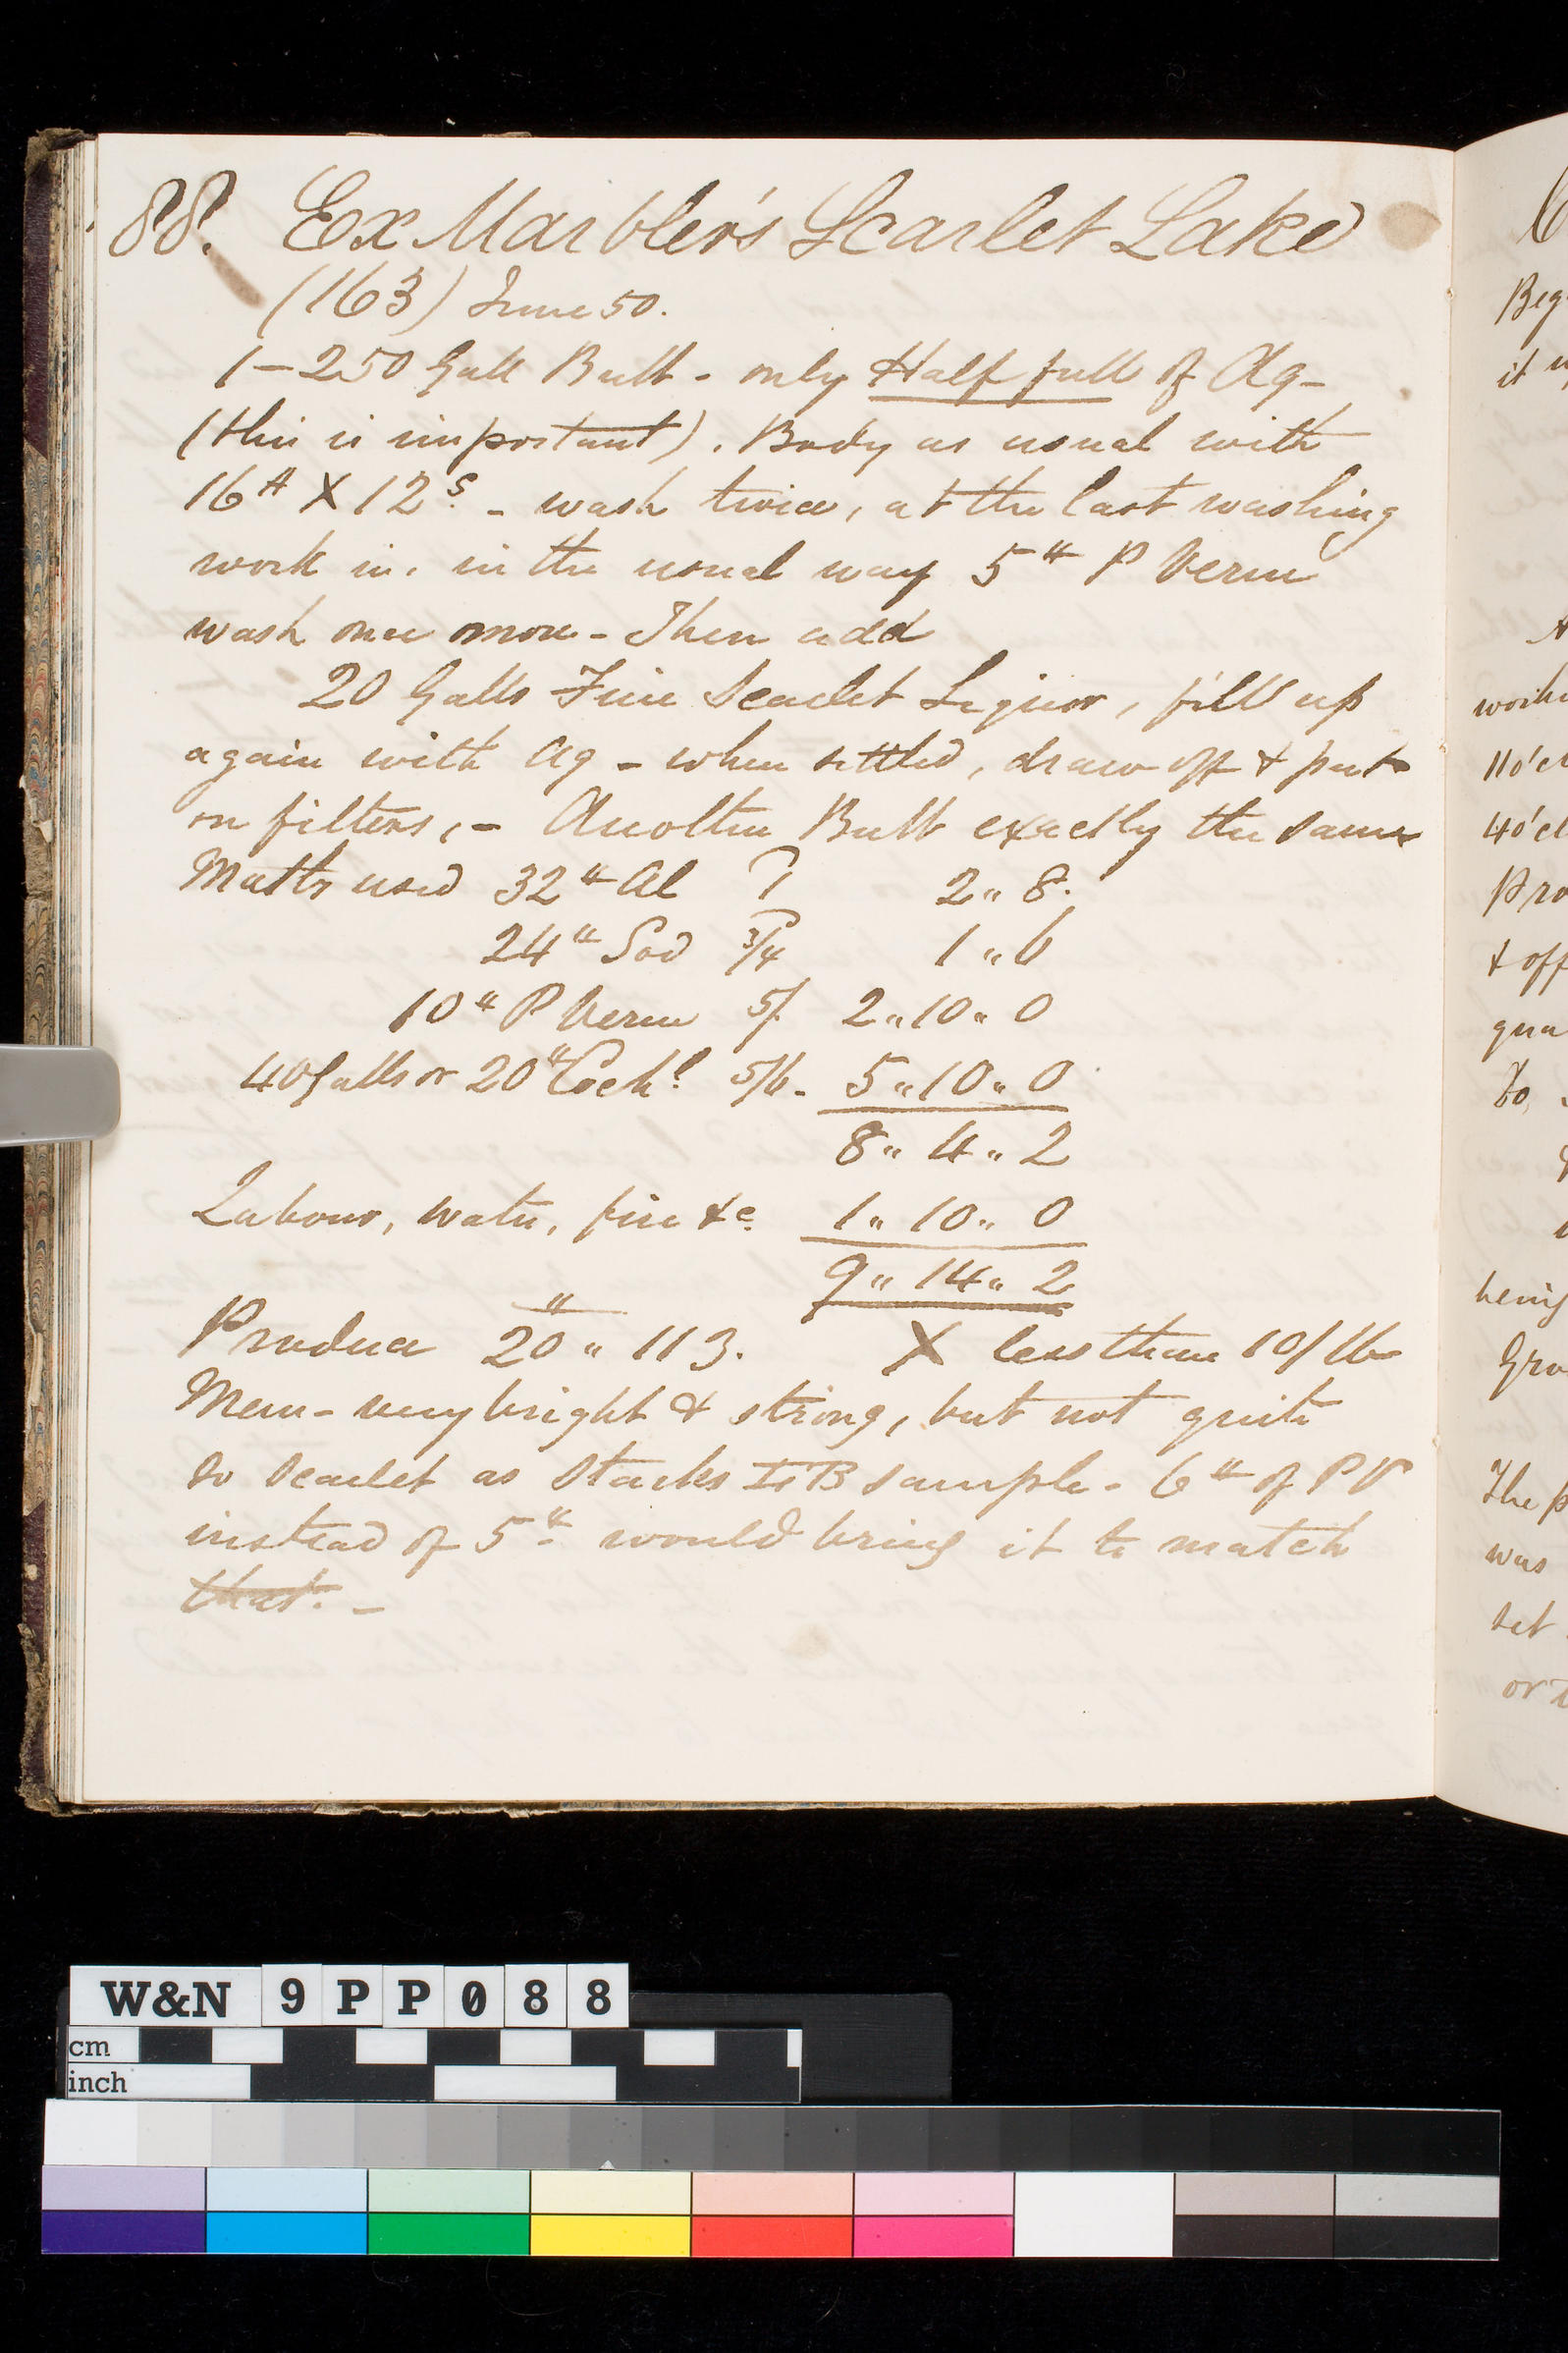 88. Ex Marbler's Scarlet Lake
(163) June 50.
1 - 250 Gall Butt - only Half full of Aq -
(this is important). Body as usual with
16 A X 12 S. - wash twice, at the last washing
work in, in the usual way 5 " P Verm
wash once more - Then add
20 Galls Fine Scarlet Liquor, fill up
again with Aq - when settled, draw off & put
on filters, - Another Butt exactly the same
Matls used 32 " Al 1 2 " 8.
24 " Sod 3/4 1 " 6
10 " P Verm 5/. 2 " 10 " 0
40 Galls or 20 " Cochl 5/6 - 5 " 10 " 0
8 " 4 " 2
Labour, water, fire &c. 1 " 10 " 0
9 " 14 " 2
Produce 20 " 113. X less than 10/ lb
Mem - very bright & strong, but not quite
so scarlet as Stacks sample - 6 " of P V
instead of 5 " - would bring it to match
that. -
Beg
it
11 o'cl
4 o'cl
Pro
& off
qua
to
being
Gro
The p
was
set
or
W&N 9PP088
cm
inch